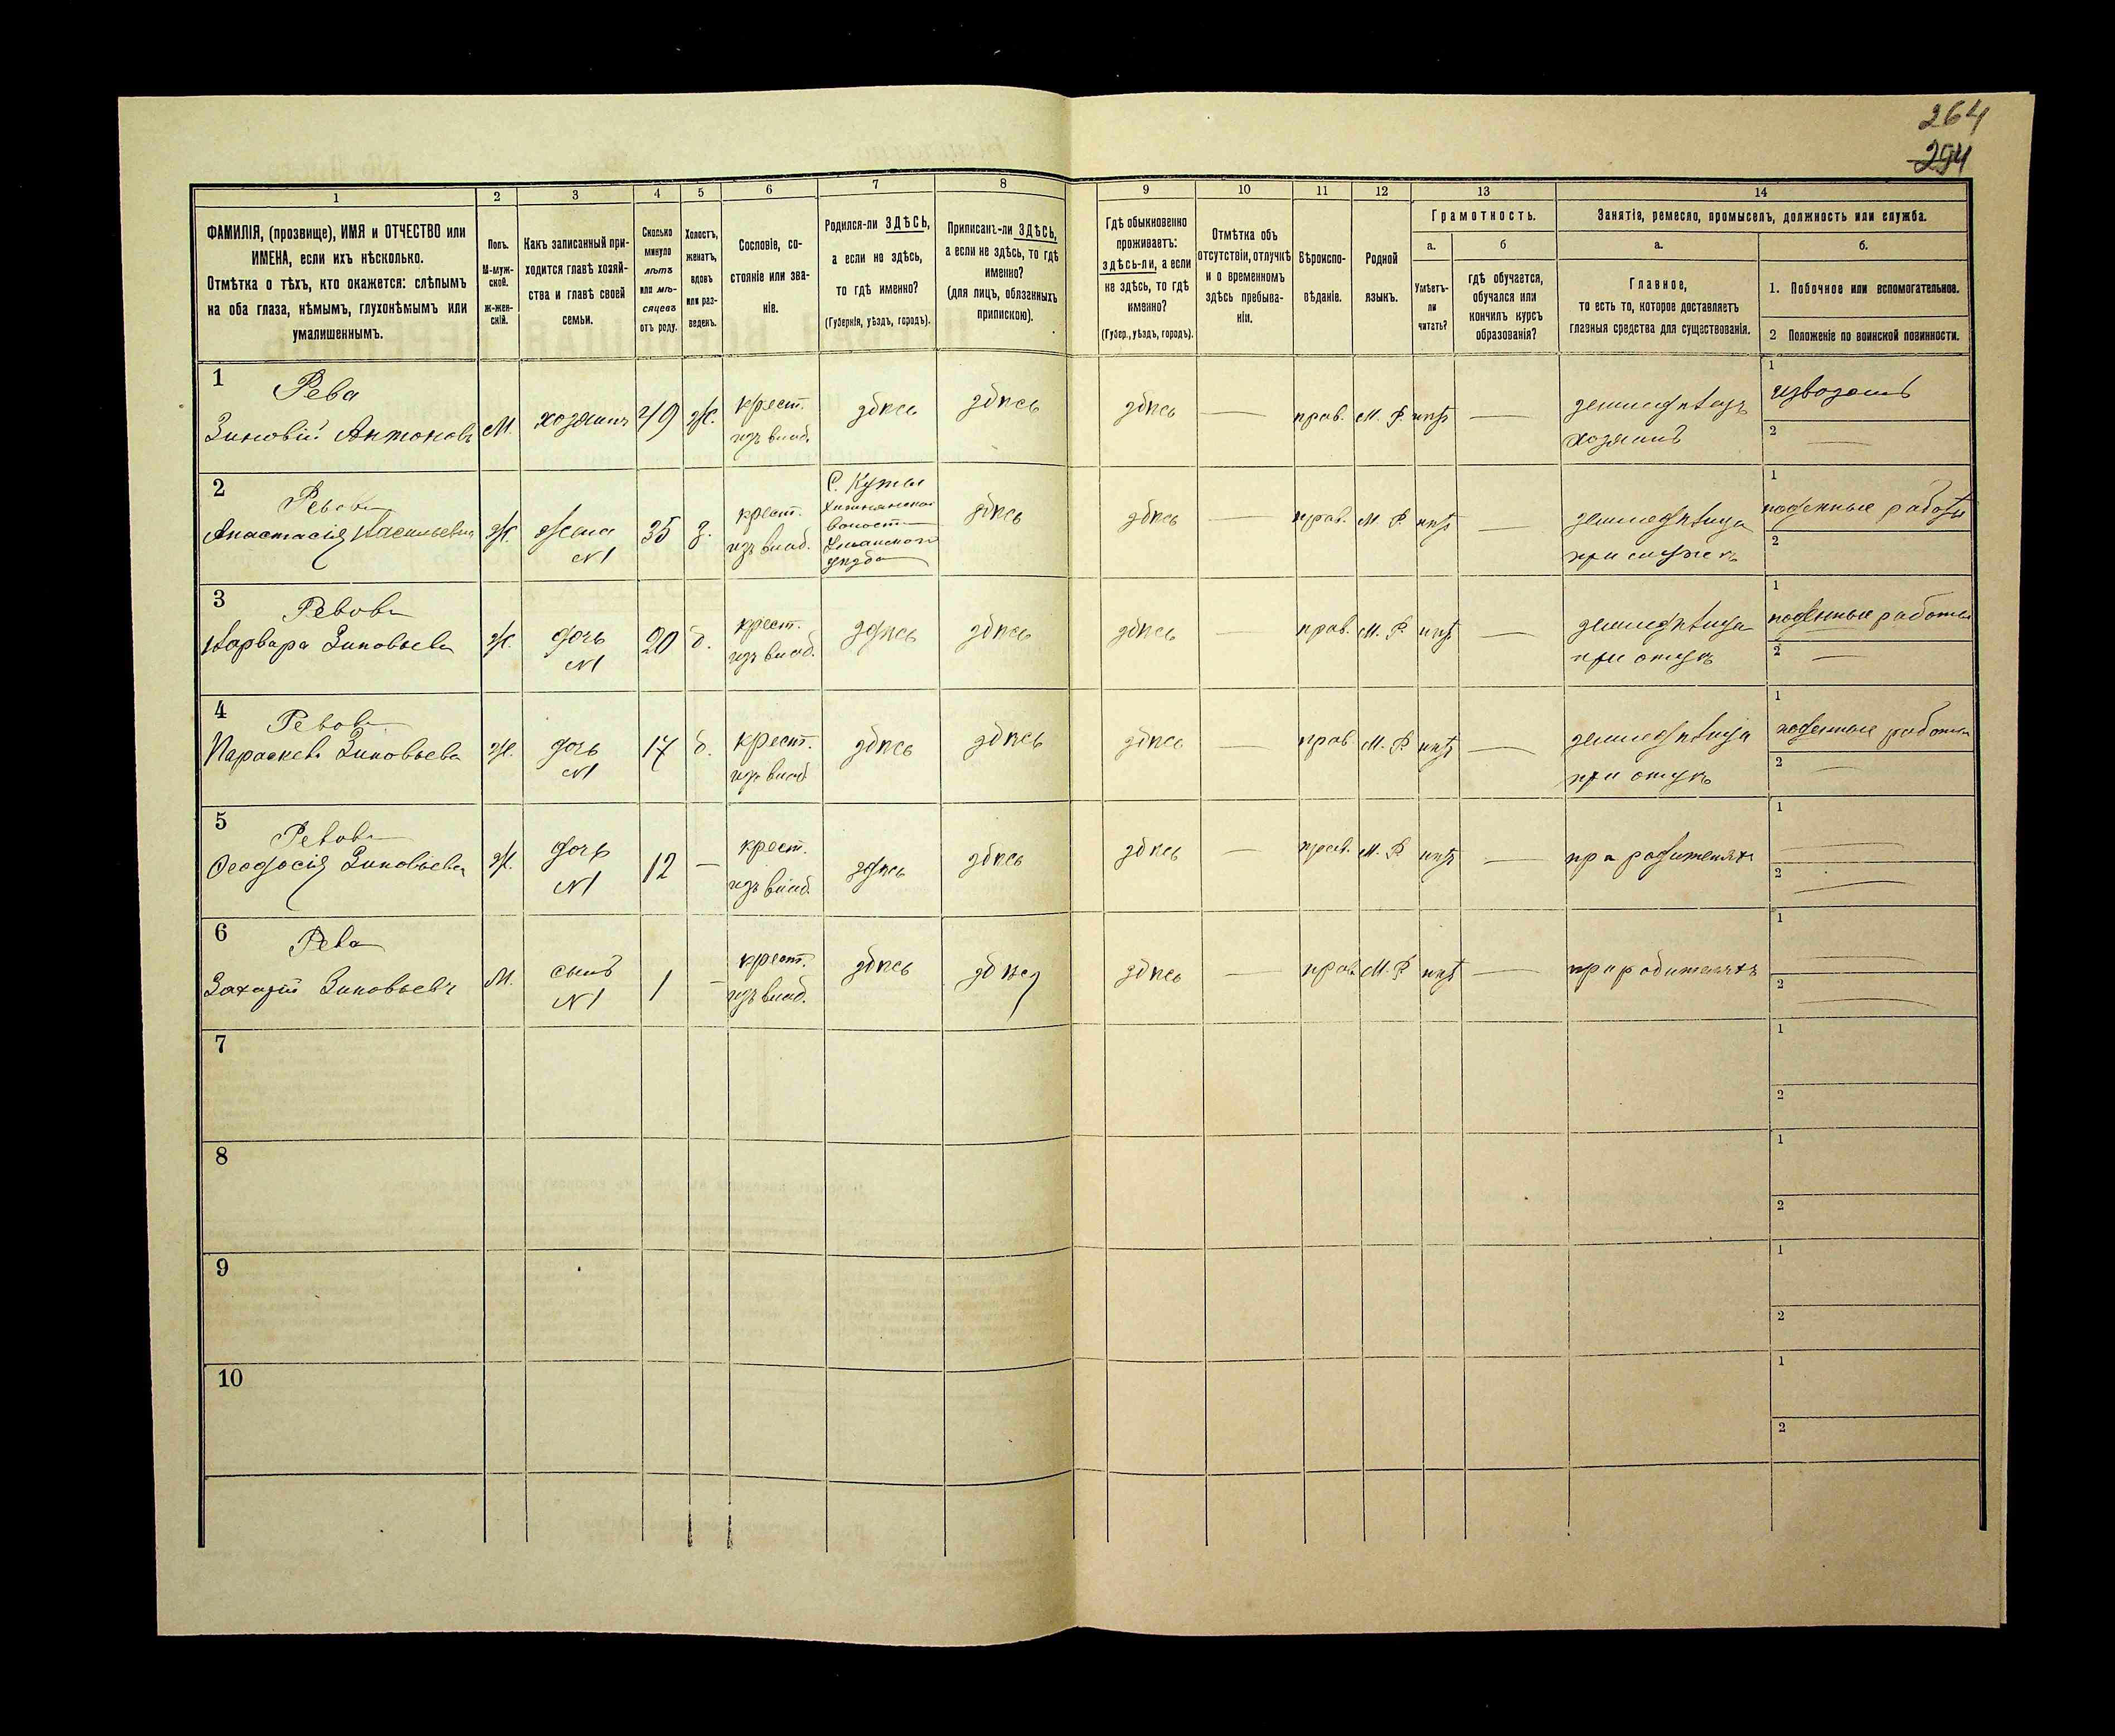 264
294
1
2
3
4
5
6
7
8
9
10
11
12
13
14
ФАМИЛІЯ, (прозвище), ИМЯ и ОТЧЕСТВО или
ИМЕНА, если ихъ нѣсколько.
Отмѣтка о тѣхъ, кто окажется: слѣпымъ
на оба глаза, нѣмымъ, глухонѣмымъ или
умалишеннымъ.
Полъ.
М-муж-
ской.
Ж-жен-
скій.
Какъ записанный при-
ходится главѣ хозяй-
ства и главѣ своей
семьи.
Сколько
минуло
лѣтъ
или мѣ-
сяцевъ
отъ роду.
Холостъ,
женатъ,
вдовъ
или раз-
веденъ.
Сословіе, со-
стояніе или зва-
ніе.
Родился-ли ЗДѢСЬ,
а если не здѣсь,
то гдѣ именно?
(Губернія, уѣздъ, городъ).
Приписанъ-ли ЗДѢСЬ,
а если не здѣсь, то гдѣ
именно?
(для лицъ, обязанныхъ
припискою).
Гдѣ обыкновенно
проживаетъ:
здѣсь-ли, а если
не здѣсь, то гдѣ
именно?
(Губер., уѣздъ, городъ).
Отмѣтка объ
отсутствіи, отлучкѣ
и о временномъ
здѣсь пребыва-
ніи.
Вѣроиспо-
вѣданіе.
Родной
языкъ.
Грамотность.
а.
Умѣетъ-
ли
читать?
б
гдѣ обучается,
обучался или
кончилъ курсъ
образованія?
Занятіе, ремесло, промыселъ, должность или служба.
а.
Главное,
то есть то, которое доставляетъ
главныя средства для существованія.
б.
1. Побочное или вспомогательное.
2 Положеніе по воинской повинности.
1
Рева
Зиновій Антоновъ
М.
хозяинъ
49
Ж.
крест.
изъ влад.
здѣсь
здѣсь
здѣсь
прав.
М. Р.
нѣтъ
земледѣлецъ
хозяинъ
1
извозомъ
2
2
Ревова
Анастасія Васильевна
Ж.
жена
N1
35
з.
крест.
изъ влад.
С. Куты
волост
Уманского
уѣзда
здѣсь
здѣсь
прав.
М. Р.
нѣтъ
земледѣлица
при мужѣ
1
поденные работы
2
3
Ревова
Варвара Зиновьева
Ж.
дочь
N1
20
д.
крест.
изъ влад.
здѣсь
здѣсь
здѣсь
прав.
М. Р.
нѣтъ
земледѣлица
при отцѣ
1
поденные работы
2
4
Ревова
Параскева Зиновьева
Ж.
дочь
N1
17
д.
крест.
изъ влад
здѣсь
здѣсь
здѣсь
прав
М. Р.
нѣтъ
земледѣлица
при отцѣ
1
поденные работы
2
5
Ревова
Феодосія Зиновьева
Ж.
дочь
N1
12
крест.
изъ влад.
здѣсь
здѣсь
здѣсь
прав.
М. Р.
нѣтъ
при родителяхъ
1
2
6
Рева
Захарій Зиновьевъ
М.
сынъ
N1
1
крест.
изъ влад.
здѣсь
здѣсь
здѣсь
прав.
М. Р.
нѣтъ
при родителяхъ
1
2
7
1
2
8
1
2
9
1
2
10
1
2